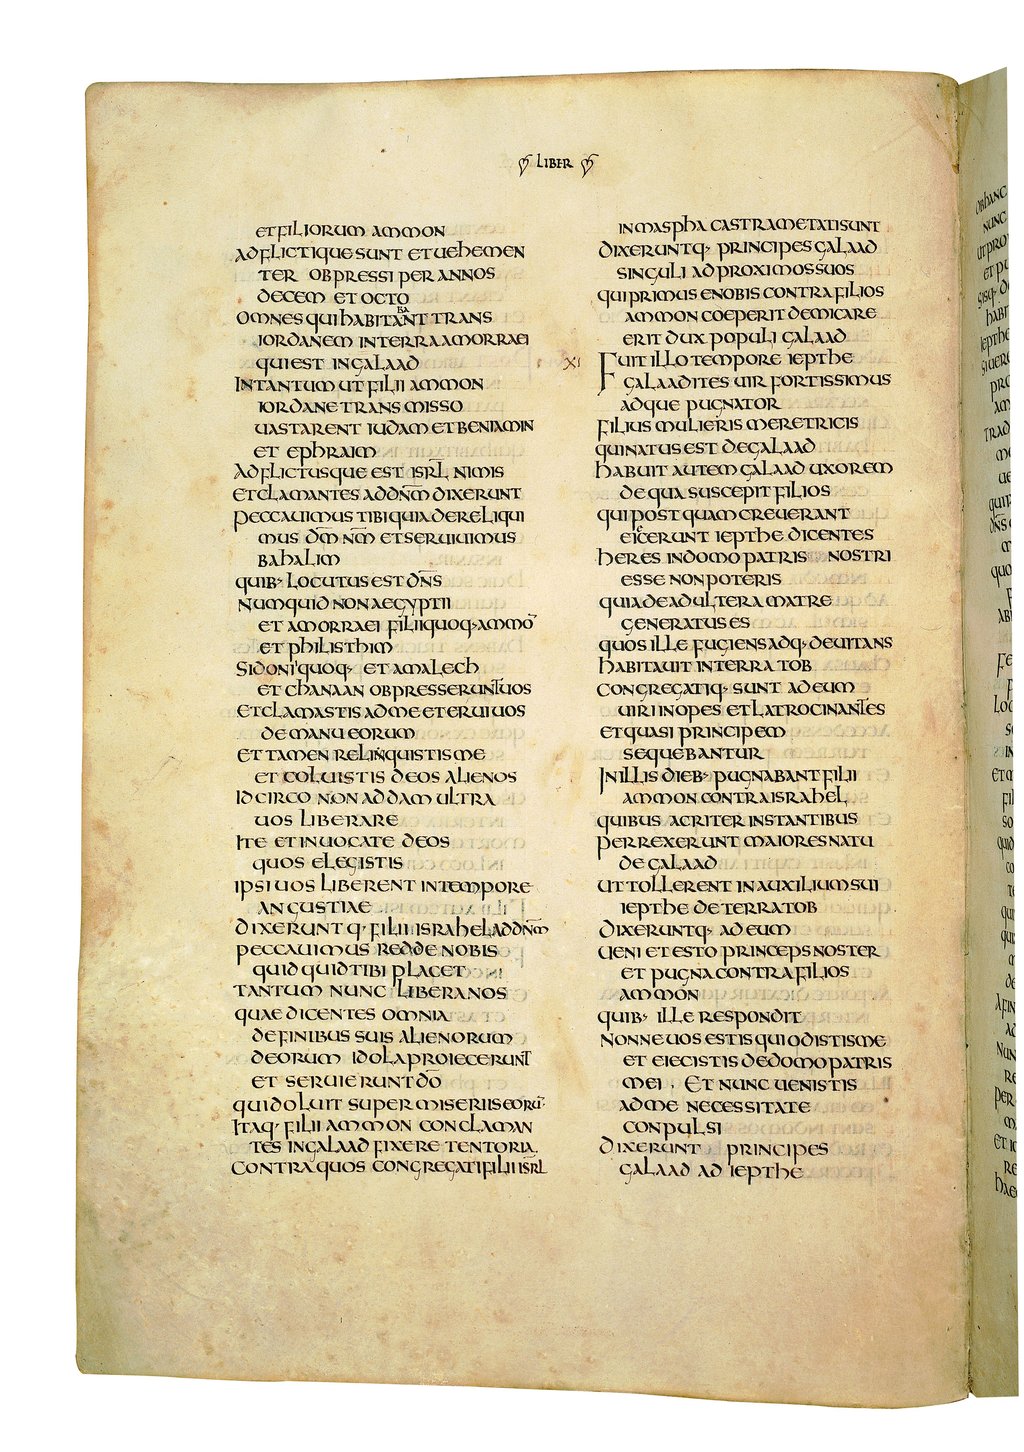 LIBER
ET FILIORUM AMMON
ADFLICTIQUE SUNT ET UEHEMEN
TER OBPRESSI PER ANNOS
DECEM ET OCTO
OMNES QUI HABITABANT TRANS
IORDANEM IN TERRA AMORRAEI
QUI EST IN GALAAD
IN TANTUM UT FILII AMMON
IORDANE TRANSMISSO
UASTARENT IUDAM ET BENIAMIN
ET EPHRAIM
ADFLICTUSQUE EST ISRL̅ NIMIS
ET CLAMANTES AD DN̅M DIXERUNT
PECCAUIMUS TIBI QUIA DERELIQUI
MUS DM̅ NM̅ ET SERUIUIMUS
BAHALIM
QUIB· LOCUTUS EST DN̅S
NUMQUID NON AEGYPTII
ET AMORRAEI FILIIQUOQ· AMMO̅
ET PHILISTHIM
SIDONI'QUOQ· ET AMALECH
ET CHANAAN OBPRESSERUNT UOS
ET CLAMASTIS AD ME ET ERUI UOS
DE MANU EORUM
ET TAMEN RELINQUISTIS ME
ET COLUISTIS DEOS ALIENOS
IDCIRCO NON ADDAM ULTRA
UOS LIBERARE
ITE ET INUOCATE DEOS
QUOS ELEGISTIS
IPSI UOS LIBERENT IN TEMPORE
ANGUSTIAE
DIXERUNTQ· FILII ISRAHEL AD DN̅M
PECCAUIMUS REDDE NOBIS
QUIDQUID TIBI PLACET
TANTUM NUNC LIBERA NOS
QUAE DICENTES OMNIA
DE FINIBUS SUIS ALIENORUM
DEORUM IDOLA PROIECERUNT
ET SERUIERUNT DO̅
QUI DOLUIT SUPER MISERIIS EORU̅·
ITAQ· FILII AMMON CONCLAMAN
TES IN GALAAD FIXERE TENTORIA
CONTRA QUOS CONGREGATI FILII ISRL̅
IN MASPHA CASTRAMETATI SUNT
DIXERUNTQ· PRINCIPES GALAAD
SINGULI AD PROXIMOS SUOS
QUI PRIMUS E NOBIS CONTRA FILIOS
AMMON COEPERIT DEMICARE
ERIT DUX POPULI GALAAD
XI FUIT ILLO TEMPORE IEPTHE
GALAADITES UIR FORTISSIMUS
ADQUE PUGNATOR
FILIUS MULIERIS MERETRICIS
QUI NATUS EST DE GALAAD
HABUIT AUTEM GALAAD UXOREM
DE QUA SUSCEPIT FILIOS
QUI POSTQUAM CREUERANT
EIECERUNT IEPTHE DICENTES
HERES IN DOMO PATRIS NOSTRI
ESSE NON POTERIS
QUIA DE ADULTERA MATRE
GENERATUS ES
QUOS ILLE FUGIENS ADQ· DEUITANS
HABITAUIT IN TERRA TOB
CONGREGATIQ· SUNT AD EUM
UIRI INOPES ET LATROCINANTES
ET QUASI PRINCIPEM
SEQUEBANTUR
IN ILLIS DIEB· PUGNABANT FILII
AMMON CONTRA ISRAHEL
QUIBUS ACRITER INSTANTIBUS
PERREXERUNT MAIORES NATU
DE GALAAD
UT TOLLERENT IN AUXILIUM SUI
IEPTHE DE TERRA TOB
DIXERUNTQ· AD EUM
UENI ET ESTO PRINCEPS NOSTER
ET PUGNA CONTRA FILIOS
AMMON
QUIB· ILLE RESPONDIT
NONNE UOS ESTIS QUI ODISTIS ME
ET EIECISTIS DE DOMO PATRIS
MEI . ET NUNC UENISTIS
AD ME NECESSITATE
CONPULSI
DIXERUNT PRINCIPES
GALAAD AD IEPTHE